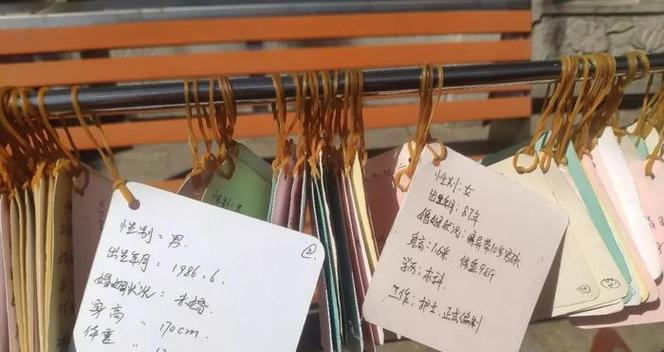 性别 = 男.
出生年月 = 1986.6
婚姻状况 = 未婚.
身高 〃 170cm.
体重 〃
②
性别: 女
出生年月: 87年
婚姻状况: 离异带10岁男孩
身高: 1.6米、体重92斤
学历: 本科
工作: 护士、正式编制